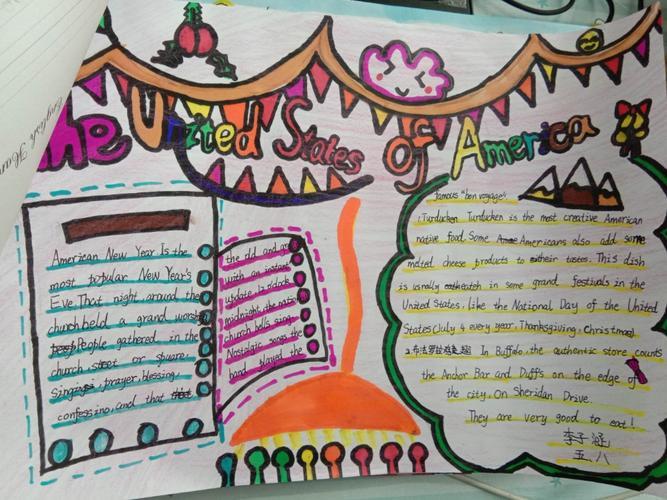 The United States of America
American New Year Is the
most popular New Year's
Eve. That night around the
church held a grand worship
People gathered in the
church street or square.
Singing, prayer, blessing.
confession, and that
the old and
with an instant
update. 12 o'clock
midnight, the nation
church bells, sing
Nostalgic songs the
band played the
famous "bon voyage".
1.Turducken Turducken is the most creative American
native food. Some Americans also add some
melted cheese products to tastes. This dish
is usually in some grand festivals in the
United States, like the National Day of the United
States (July 4 every year. Thanksgiving. Christmas)
2. In Buffalo, the authentic store counts
the Anchor Bar and Duff's on the edge of
the city, on Sheridan Drive.
They are very good to eat!
李子涵
五、八
English